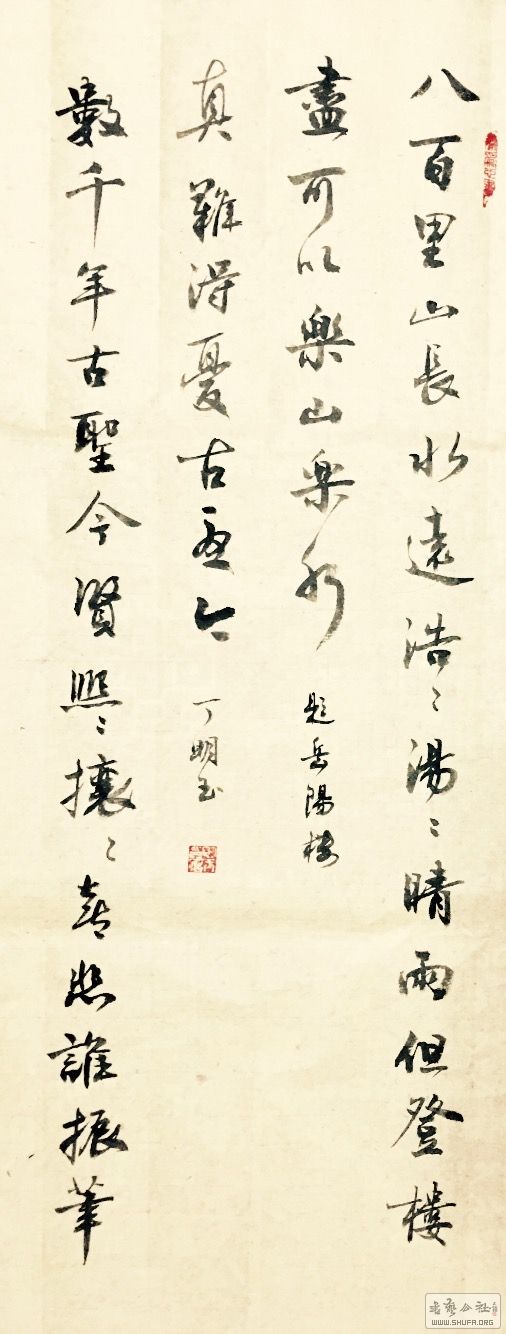 八百里山長水遠浩〻湯〻晴雨但登樓
盡可以樂山樂水
題岳陽樓
數千年古聖今賢熙〻攘〻喜悲誰振筆
真難得憂古憂今
丁明玉
書藝公社
WWW.SHUFA.ORG